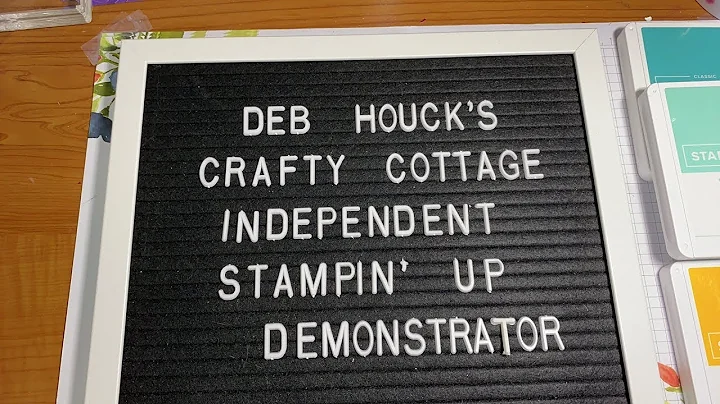 DEB HOUCK'S
CRAFTY COTTAGE
INDEPENDENT
STAMPIN' UP
DEMONSTRATOR
CLASSIC
STA